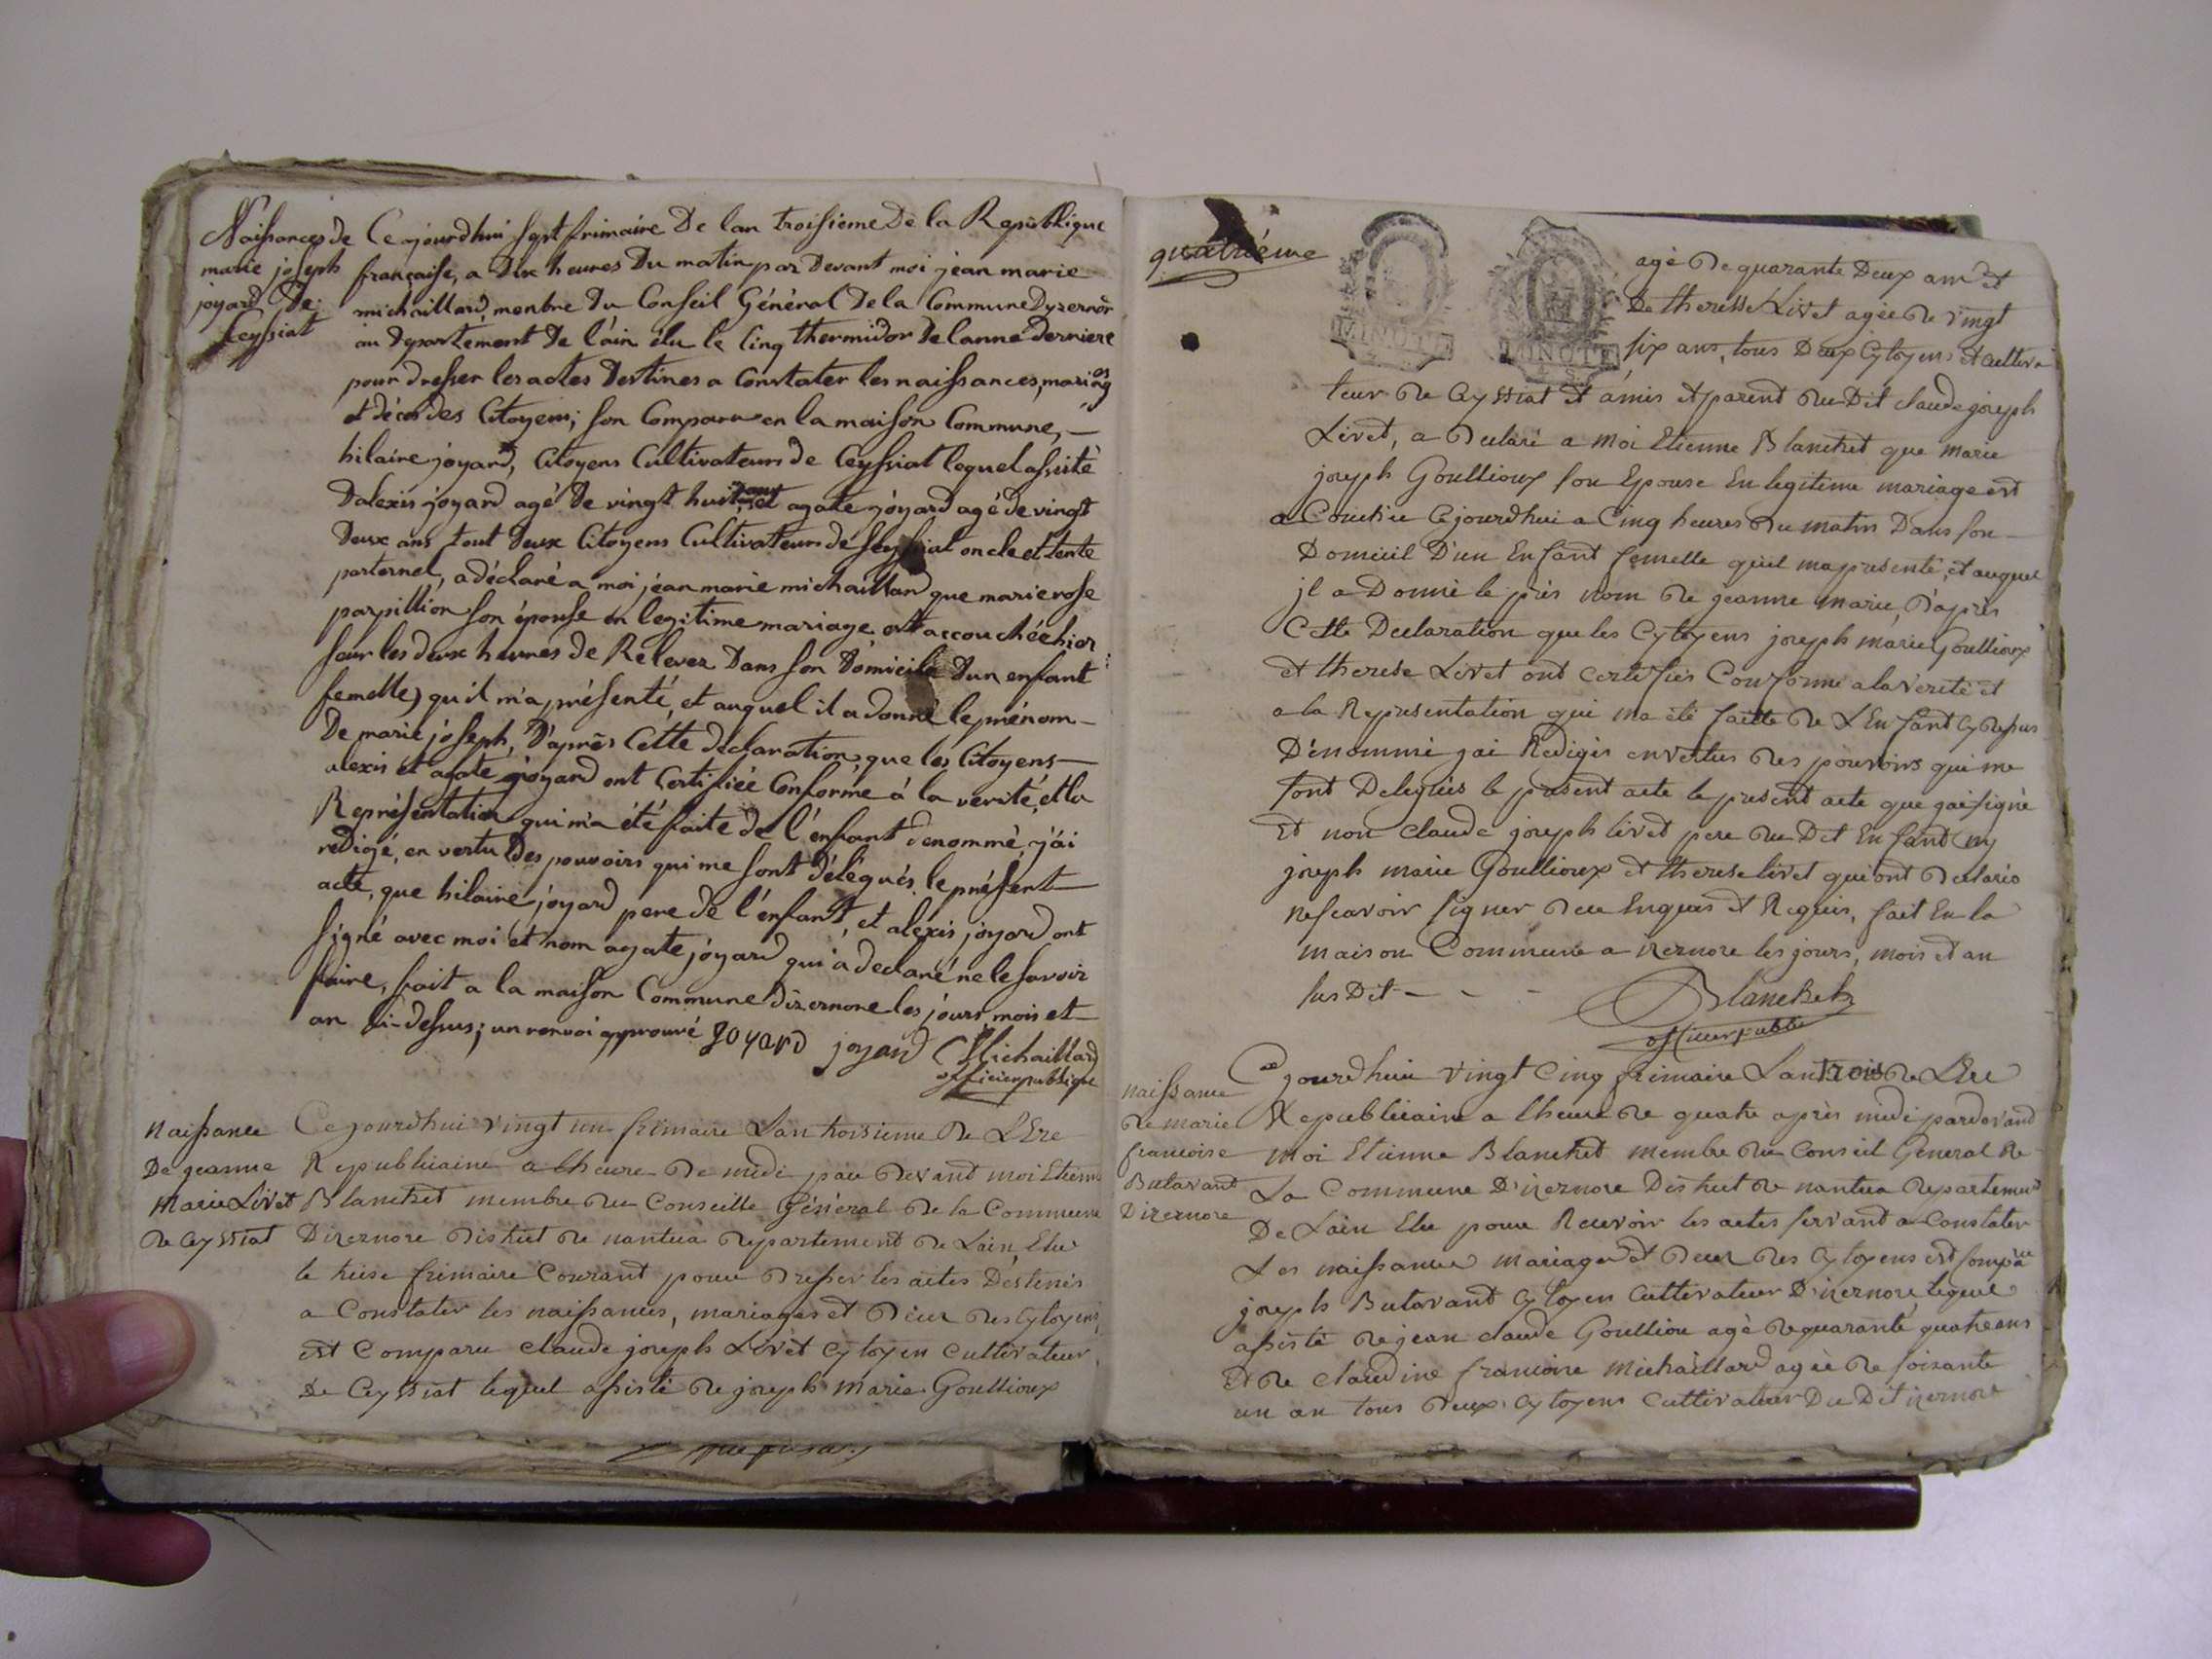 Naissances de
marie joseph
joyard de
Ceyssiat
Ce ajourdhui sept frimaire De lan troisieme De la Republique
française, a dix heures Du matin par Devant moi jean marie
michaillard, menbre Du Conseil Général De la Commune Dyzernore
au departement De l'ain élu le cinq thermidor de lanné derniere
pour dresser les actes Destines a constater les naissances, mariages
et décès des Citoyens; son comparu en la maison Commune, —
hilaire joyard, Citoyens Cultivateurs de Ceyssiat lequel assisté
Dalexis joyard agé de vingt huit ans et agate joyard agé de vingt
Deux ans tout deux Citoyens Cultivateurs de Seyssiat oncle et tente
parternel, a déclaré a moi jean marie michaillard que marie rose
parpillion son épouse en legitime mariage est accouchée hier
sour les deux heures de Relevez Dans son Domicile Dun enfant
femelle, qu'il m'a présenté, et auquel il a donné le prénom —
De marie joseph, D'après Cette déclaration, que les Citoyens —
alexis et agate joyard ont Certifiée Conforme à la verité, et la
Représentation qui m'a été faite de l'enfant denommé, j'ai
rédigé, en vertu Des pouvoirs qui me sont délégués, le présent
acte, que hilaire joyard pere de l'enfant, et alexis joyard ont
signé avec moi et nom agate joyard qui a declaré ne le savoir
faire, fait a la maison Commune dizernore les jours mois et
an ci-dessus; un renvoi approuvé JOYARD joyard Michaillard
officier publique
Naissance
De jeanne
Marie Livet
de Ceyssiat
Ce jourdhui vingt un frimaire Lan troisieme de L'Ere
Republicaine a lheure de midi par devand moi Etienne
Blanchet membre du Conseille Général de la Commune
Dizernore district de nantua departement de Lain, Elu
le treise frimaire Courant pour dresser les actes Déstinés
a Constater les naissances, mariages et déces des Cytoyens,
est Comparu claude joseph Livet Cytoyen cultivateur
De Ceyssiat lequel assisté de joseph Marie Goullioux
quatriéme
MINOTE
MINOTE
agé de quarante Deux ans et
De theresse Livet agée de vingt
six ans, tous Deux Cytoyens et cultiva
teur de Ceyssiat et amis et parend du Dit claude joseph
Livet, a declaré a Moi Etienne Blanchet que Marie
joseph Goullioux son Epouse En legitime mariage est
a Couchée Cejourdhui a Cinq heures du matin Dans son —
Domicil D'un Enfant femelle qu'il ma presenté, et auquel
jl a Donné le prés nom de jeanne marie, D'après
Cette Declaration que les Cytoyens joseph marie Goullioux
et therese Livet ont certifiés Conforme a la verité et
a la Representation qui ma été faitte de L'Enfant Cydessus
Dénommé jai Redigés en vertus des pouvoirs qui me
sont Delegués le present acte le present acte que jai signé
Et non claude joseph livet pere du Dit Enfant ny
joseph marie Goullioux et therese livet qui ont declarés
ne scavoir signer de ce Enquis et Requis, fait En la
maison Commune a izernore les jours, mois et an
susDit — - -
Blanchet
officier public
naissance
de marie
francoise
Butavant
Dizernore
Ce jourdhuie vingt Cinq frimaire Lan trois de L'Ere
Republicaine a lheure de quatre après midi pardevand
moi Etienne Blanchet membre du Conseil General de
La Commune D'izernore District de nantua departement
De Lain Elu pour Recevoir les actes servand a Constater
Les naissances mariages et deces des Cytoyens est comparu
joseph Butavant Cytoyen cultivateur D'izernore lequel
assisté de jean claude Goulliou agé de quarante quatre ans
et de claudine francoise Michaillard agée de soixante
un an tous deux Cytoyens cultivateur Du Dit izernore